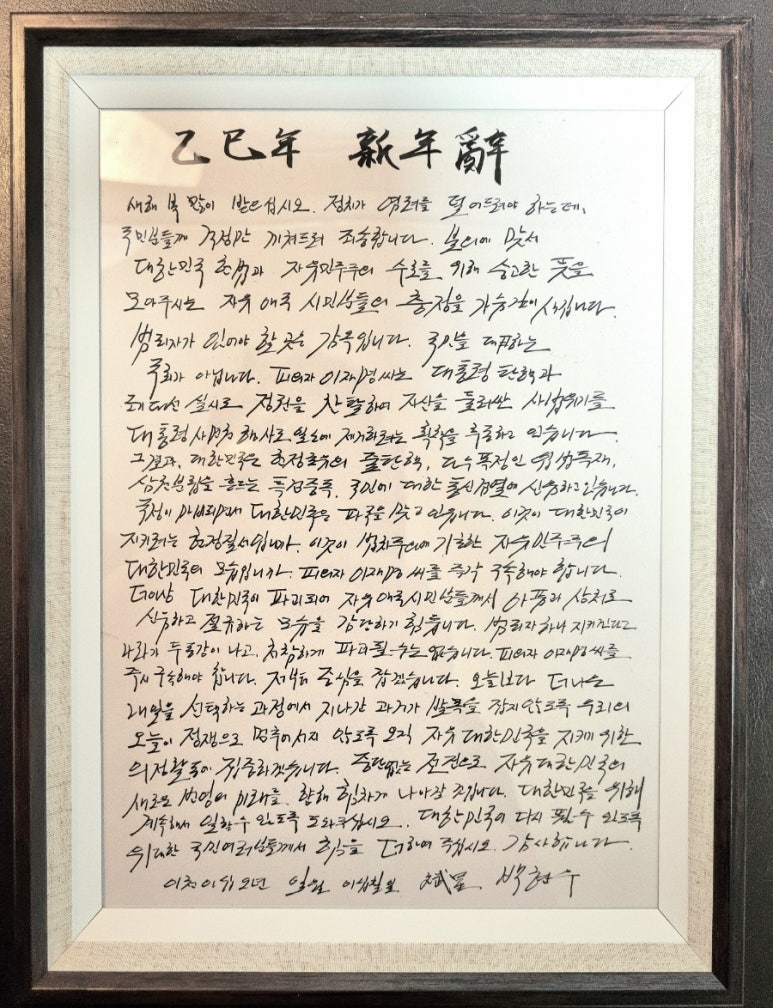 乙巳年 新年辭
새해 복 많이 받으십시오. 정치가 염려를 덜어드려야 하는데,
국민님들께 걱정만 끼쳐드려 죄송합니다. 불의에 맞서
대한민국 헌법과 자유민주주의 수호를 위해 숭고한 뜻을
모아주시는 자유 애국 시민님들의 충정을 가슴깊이 새깁니다.
범죄자가 있어야 할 곳은 감옥입니다. 국민을 대표하는
국회가 아닙니다. 피의자 이재명씨는 대통령 탄핵과
조기대선 실시로 정권을 찬탈하여 자신을 둘러싼 사법위기를
대통령 사면권 행사로 일소에 제거하려는 획책을 추종하고 있습니다.
그 결과, 대한민국은 헌정초유의 줄탄핵, 다수 폭정인 입법독재,
삼권분립을 흔드는 특검중독, 국민에 대한 통신검열에 신음하고 있습니다.
국정이 마비되면서 대한민국은 파국을 맞고 있습니다. 이것이 대한민국이
지키려는 헌정질서입니까. 이것이 법치주의에 기초한 자유민주주의
대한민국의 모습입니까. 피의자 이재명 씨를 즉각 구속해야 합니다.
더이상 대한민국이 파괴되어 자유애국시민님들께서 아픔과 상처로
신음하고 절규하는 모습을 감당하기 힘듭니다. 범죄자 하나 지키겠다고
나라가 두동강이 나고, 처참하게 파괴될 수는 없습니다. 피의자 이재명 씨를
즉시 구속해야 합니다. 저부터 중심을 잡겠습니다. 오늘보다 더 나은
내일을 선택하는 과정에서 지나간 과거가 발목을 잡지 않도록 우리의
오늘이 정쟁으로 멈추어서지 않도록 오직 자유 대한민국을 지키기 위한
의정활동에 집중하겠습니다. 중단없는 전진으로 자유대한민국의
새로운 번영의 미래를 향해 힘차게 나아갈 것입니다. 대한민국을 위해
계속해서 일할 수 있도록 도와주십시오. 대한민국이 다시 뛸 수 있도록
위대한 국민여러님들께서 힘을 더하여 주십시오. 감사합니다.
이천이십오년 일월 이십칠일 박현수